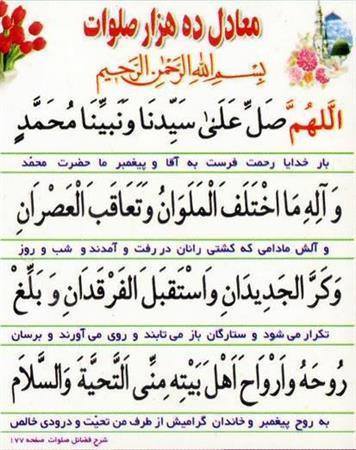 معادل ده هزار صلوات
بِسْمِ اللهِ الرَّحْمٰنِ الرَّحِيْمِ
اَللّهُمَّ صَلِّ عَلَىٰ سَيِّدِنَا وَنَبِيِّنَا مُحَمَّدٍ
بار خدایا رحمت فرست به آقا و پیغمبر ما حضرت محمّد
وَ آلِهِ مَا اخْتَلَفَ الْمَلَوَانُ وَتَعَاقَبَ الْعَصْرَانِ
و آلش مادامی که کشتی رانان در رفت و آمدند و شب و روز
وَكَرَّ الْجَدِيدَانِ وَاسْتَقْبَلَ الْفَرْقَدَانِ وَ بَلِّغْ
تکرار می شود و ستارگان باز می تابند و روی می آورند و برسان
رُوحَهُ وَاَرْوَاحَ اَهْلِ بَيْتِهِ مِنِّى اَلتَّحِيَّةَ وَالسَّلَامَ
به روح پیغمبر و خاندان گرامیش از طرف من تحیّت و درودی خالص
شرح فضائل صلوات صفحه ۱۷۷